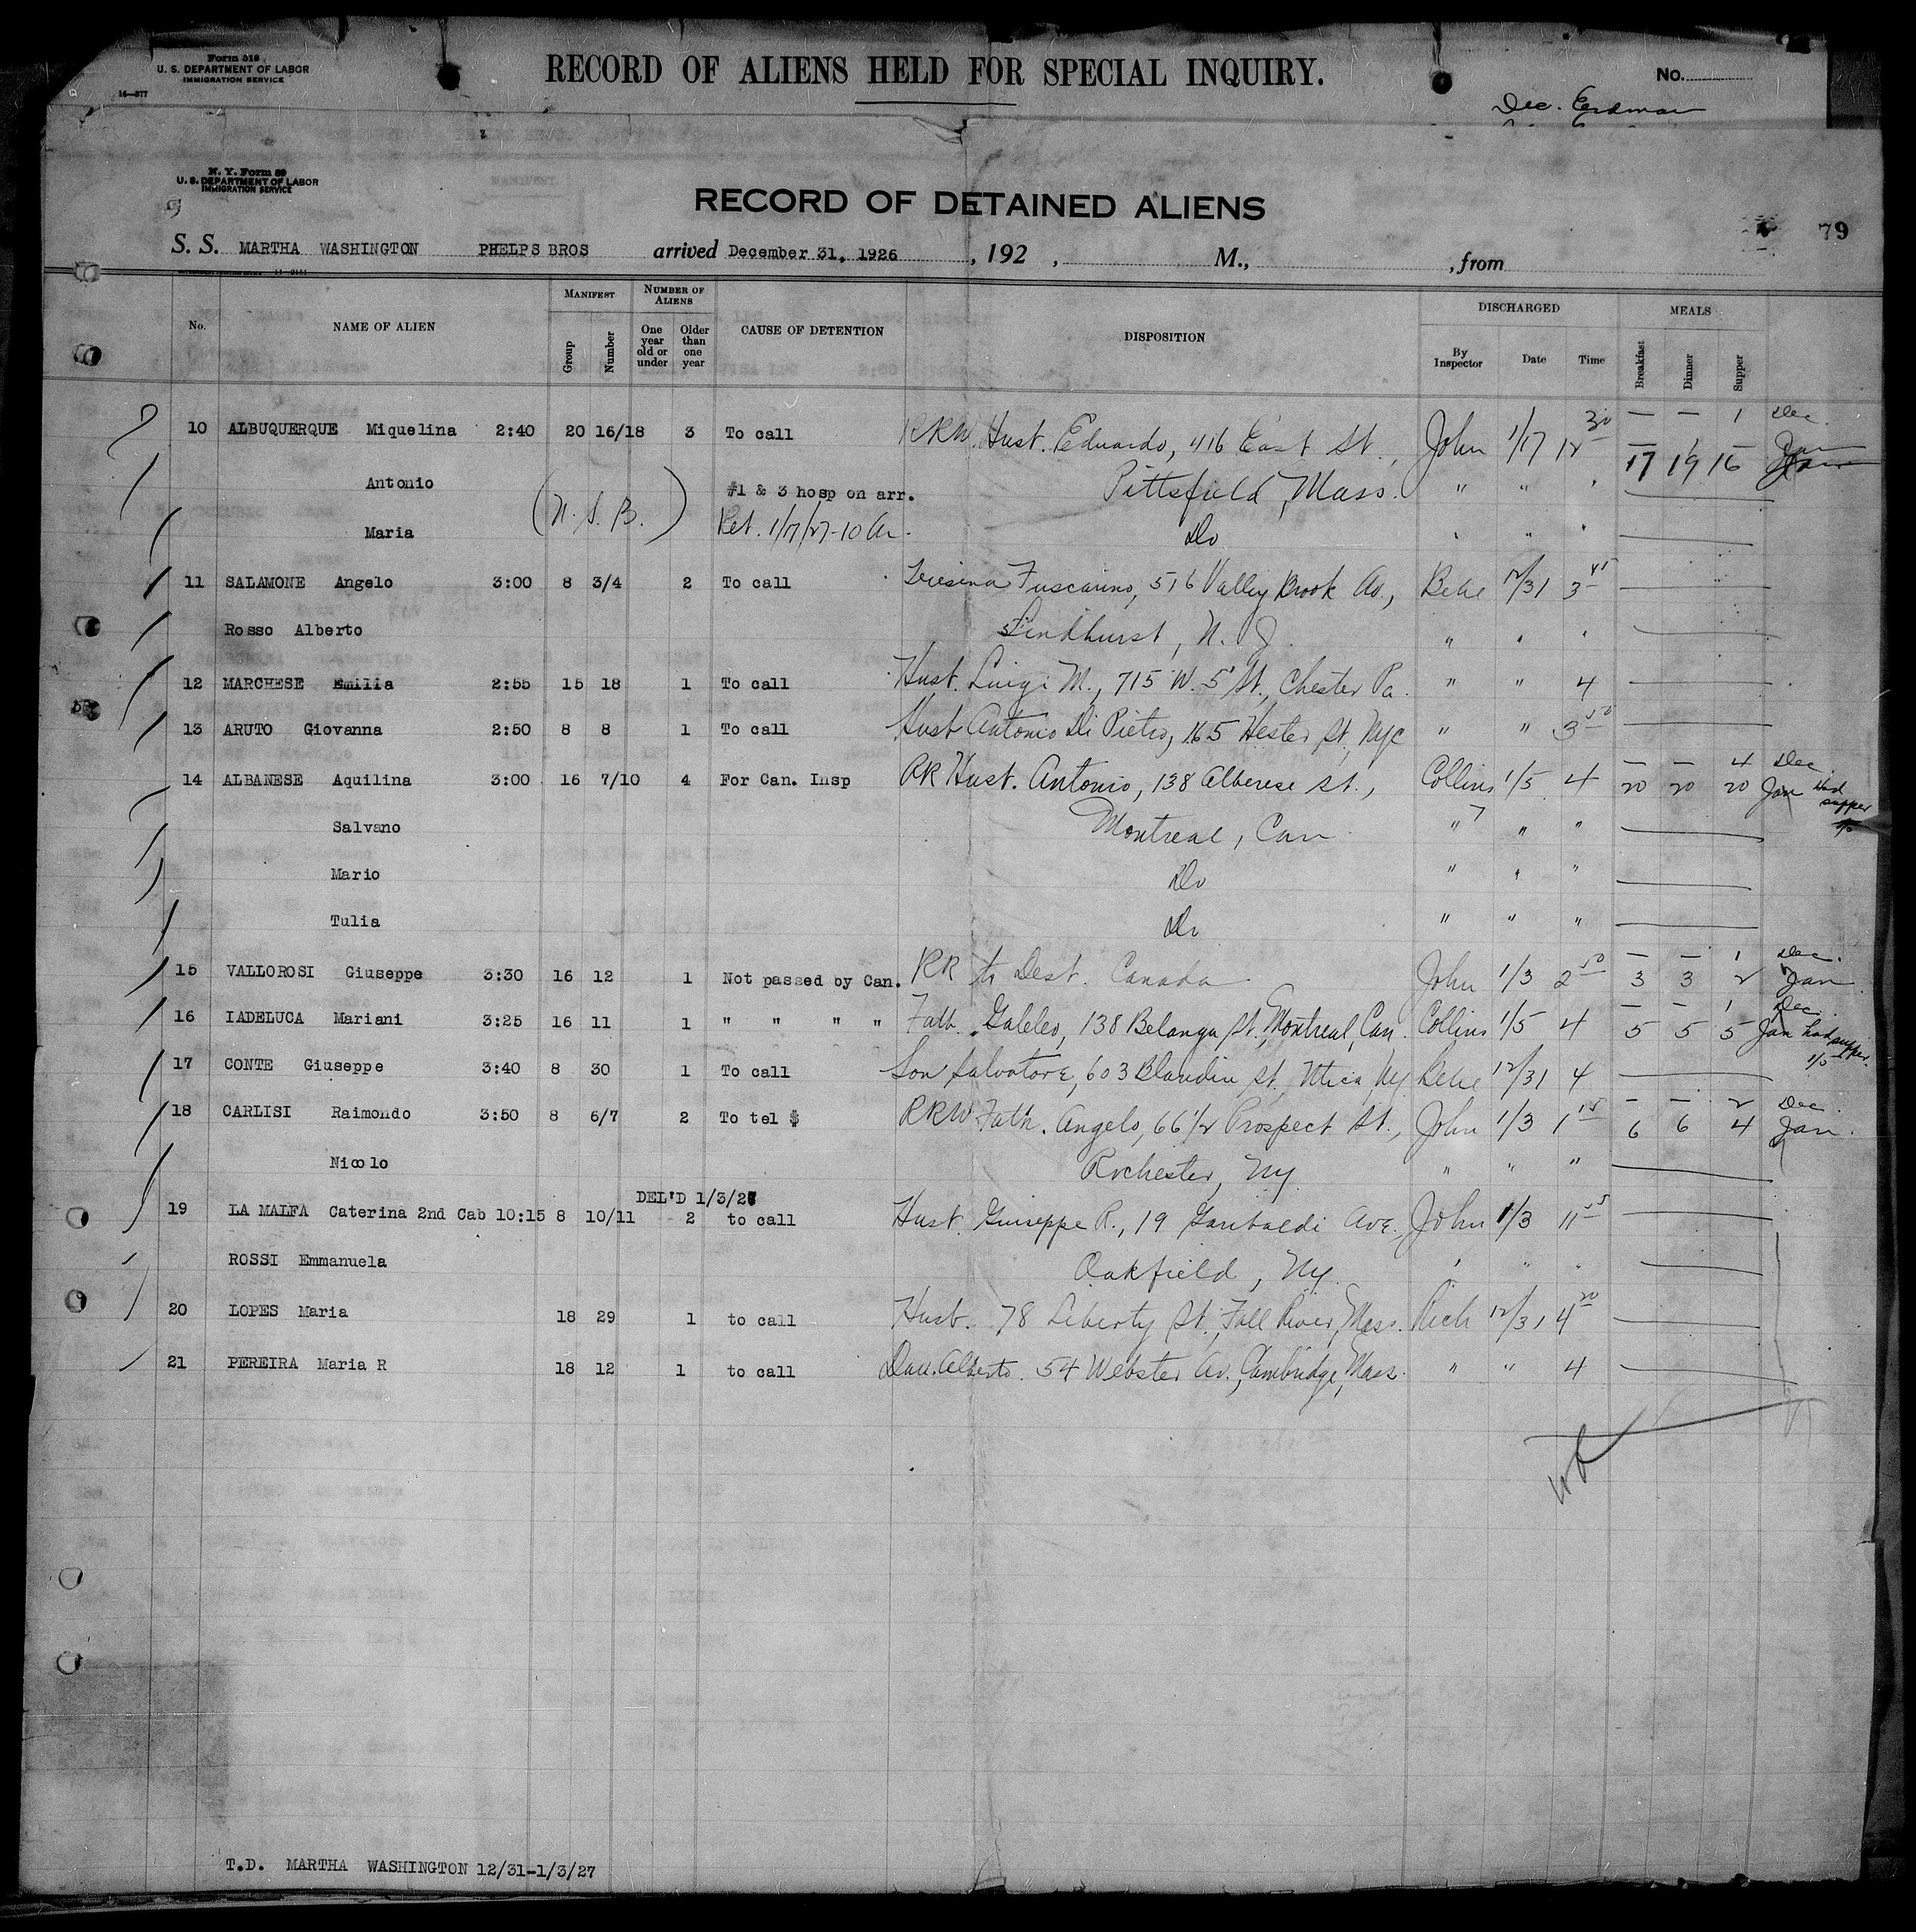 Form 518
U. S. DEPARTMENT OF LABOR
IMMIGRATION SERVICE
14—577
RECORD OF ALIENS HELD FOR SPECIAL INQUIRY.
No.
Dec. Erdman
N. Y. Form 89
U. S. DEPARTMENT OF LABOR
IMMIGRATION SERVICE
RECORD OF DETAINED ALIENS
79
S. S. MARTHA WASHINGTON PHELPS BROS arrived December 31, 1926, 192 , M., , from
No. NAME OF ALIEN MANIFEST Group Number NUMBER OF ALIENS One year old or under Older than one year CAUSE OF DETENTION DISPOSITION DISCHARGED By Inspector Date Time MEALS Breakfast Dinner Supper
— — 1 Dec.
10 ALBUQUERQUE Miquelina 2:40 20 16/18 3 To call RRW Husb. Eduardo, 416 East St., John 1/17 12 30 17 19 16 Jan
Antonio #1 & 3 hosp on arr. Pittsfield, Mass. " " "
Maria (N. S. B.) Ret. 1/17/27-10 Do " " "
11 SALAMONE Angelo 3:00 8 3/4 2 To call Teresina Fuscarino, 516 Valley Brook Av., Behe 12/31 3 45
Rosso Alberto Lindhurst, N. J. " " "
12 MARCHESE Emilia 2:55 15 18 1 To call Husb. Luigi M., 715 W. 5 St., Chester Pa. " " 4
13 ARUTO Giovanna 2:50 8 8 1 To call Husb Antonio Di Pietro, 165 Hester St, Nyc " " 3 50
— — 4 Dec.
14 ALBANESE Aquilina 3:00 16 7/10 4 For Can. Insp RR Husb. Antonio, 138 Alberese St., Collins 1/5 4 20 20 20 Jan Had supper
Salvano Montreal, Can " " "
Mario Do " " "
Tulia Do " " "
— — 1 Dec.
15 VALLOROSI Giuseppe 3:30 16 12 1 Not passed by Can. RR to Dest. Canada John 1/3 2 50 3 3 2 Jan
— — 1 Dec.
16 IADELUCA Mariani 3:25 16 11 1 " " " " Fath. Galeleo, 138 Belanga St., Montreal, Can. Collins 1/5 4 5 5 5 Jan had supper 1/5
17 CONTE Giuseppe 3:40 8 30 1 To call Son Salvatore, 603 Blandin St, Utica Ny Behe 12/31 4
— — 2 Dec.
18 CARLISI Raimondo 3:50 8 6/7 2 To tel $ RRW Fath. Angelo, 66 1/2 Prospect St., John 1/3 1 15 6 6 4 Jan.
Nicolo Rochester, Ny " " "
DEL'D 1/3/27
19 LA MALFA Caterina 2nd Cab 10:15 8 10/11 2 to call Husb. Guiseppe R., 19 Garibaldi Ave., John 1/3 11 55
ROSSI Emmanuela Oakfield, Ny. " " "
20 LOPES Maria 18 29 1 to call Husb. 78 Liberty St., Fall River, Mass. Rich 12/31 4 20
21 PEREIRA Maria R 18 12 1 to call Dau. Alberto. 54 Webster Av., Cambridge, Mass. " " 4
T.D. MARTHA WASHINGTON 12/31-1/3/27